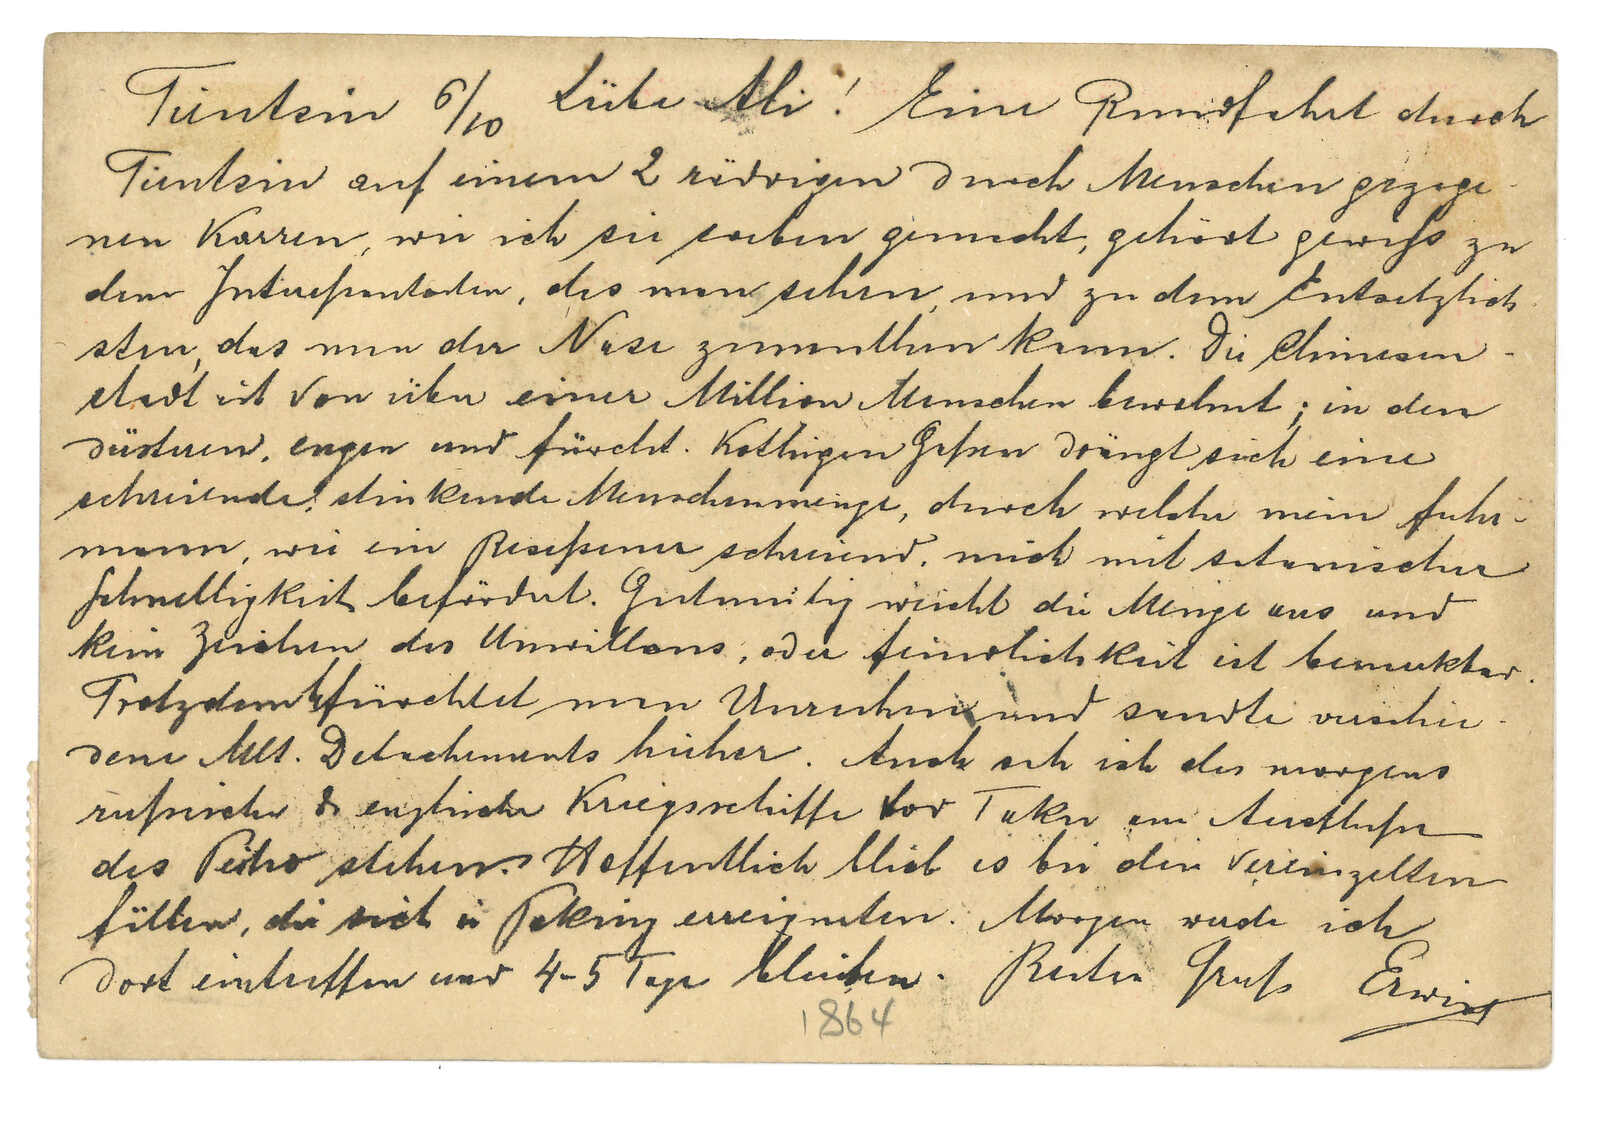 Tientsin 6/10 Liebe Ali! Eine Rundfahrt durch
Tientsin auf einem 2 rädrigen durch Menschen gezoge-
nen Karren, wie ich sie soeben gemacht, gehört gewiß zu
dem Interessantesten, das man sehen, und zu dem Entsetzlich
sten, das man der Nase zumuthen kann. Die Chinesen-
stadt ist von über einer Million Menschen bewohnt; in den
düsteren, engen und fürcht. kothigen Gaßen drängt sich eine
schreiende, stinkende Menschenmenge, durch welche mein Fuhr-
mann, wie ein Beseßener schreiend, mich mit satanischer
Schnelligkeit befördert. Gutmütig weicht die Menge aus und
kein Zeichen des Unwillens, oder Feindlichkeit ist bemerkbar.
Trotzdem fürchtet man Unruhen und sandte verschie-
dene Mlt. Detachements hieher. Auch sah ich des morgens
rußische & englische Kriegsschiffe vor Taku am Ausfluße
des Peiho stehen. Hoffentlich blieb es bei den vereinzelten
Fällen, die sich in Peking ereigneten. Morgen werde ich
dort eintreffen und 4-5 Tage bleiben. Besten Gruß Erwin
1864